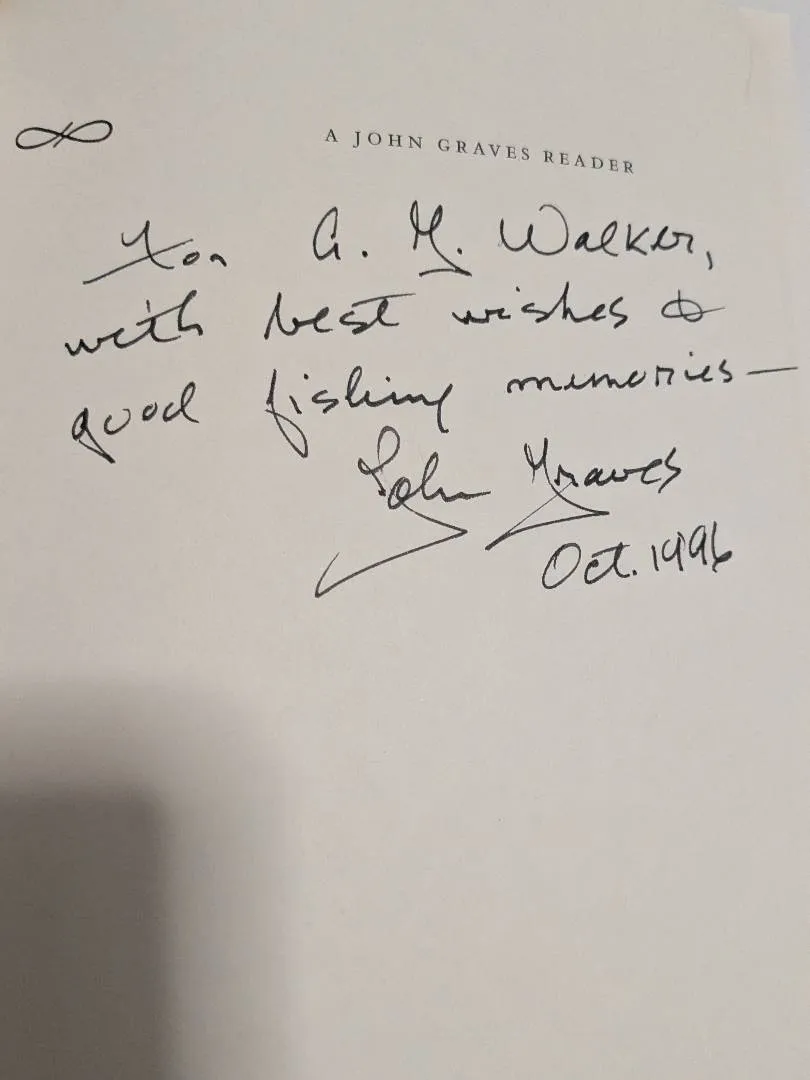 A JOHN GRAVES READER
For G. M. Walker,
with best wishes &
good fishing memories—
John Graves
Oct. 1996